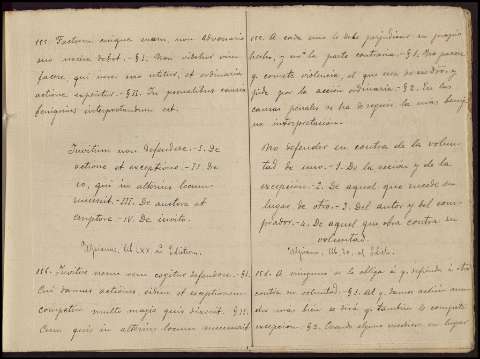 155. Factum cuique suum, non adversario
suo nocere debet. - § I. Non videtur vim
facere, qui jure suo utitur, et ordinaria
actione expositur. - § II. In poenalibus causis
benignius interpretandum est.
Invitum non defendere. - I. De
actione et exceptione. - II. De
eo, qui in alterius locum
succesit. - III. De auctore et
emptore. - IV. De invito.
Ulpianus, lib. LXX ad Edictum.
156. Invitus nemo rem cogitur defendere. - § I.
Cui damus actiones eidem et exceptionem
competere multo magis quis dixerit. - § II.
Cum quis in alterius locum successerit
155. A cada uno le debe perjudicar su propio
hecho, y no á la parte contraria. - § 1. No parece
q. comete violencia, el que usa de su dro. y
pide por la acción ordinaria. - § 2. En las
causas penales se ha de seguir la mas benig-
na interpretación.
No defender en contra de la volun-
tad de uno. - 1. De la acción y de la
excepcion. - 2. De aquel que sucede en
lugar de otro. - 3. Del autor y del com-
prador. - 4. De aquel que obra contra su
voluntad.
Ulpiano, lib. 70, al Edicto.
156. A ninguno se le obliga á q. defienda á otro
contra su voluntad. § 1. Al q. damos acción mu-
cho mas bien se dirá q. tambien le compete
excepcion. § 2. Cuando alguno sucediere en lugar